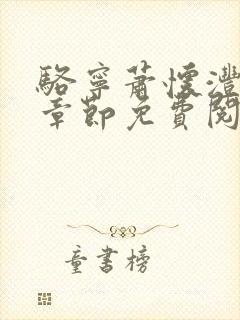 駱寧蕭懷灃
章節免費閱
童書榜